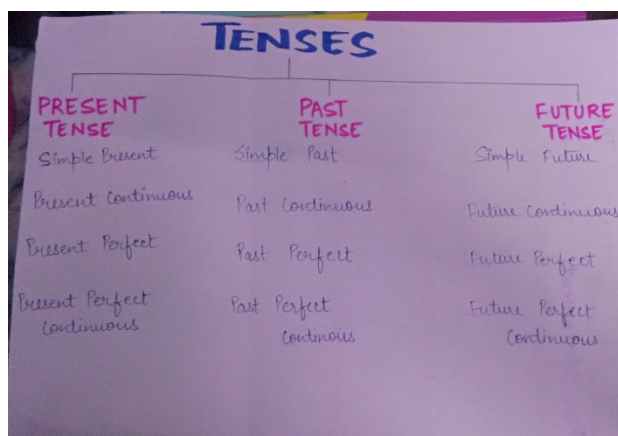 TENSES
PRESENT
TENSE
Simple Present
Present Continuous
Present Perfect
Present Perfect
Continuous
PAST
TENSE
Simple Past
Past Continuous
Past Perfect
Past Perfect
Continous
FUTURE
TENSE
Simple Future
Future Continuous
Future Perfect
Future Perfect
Continuous.